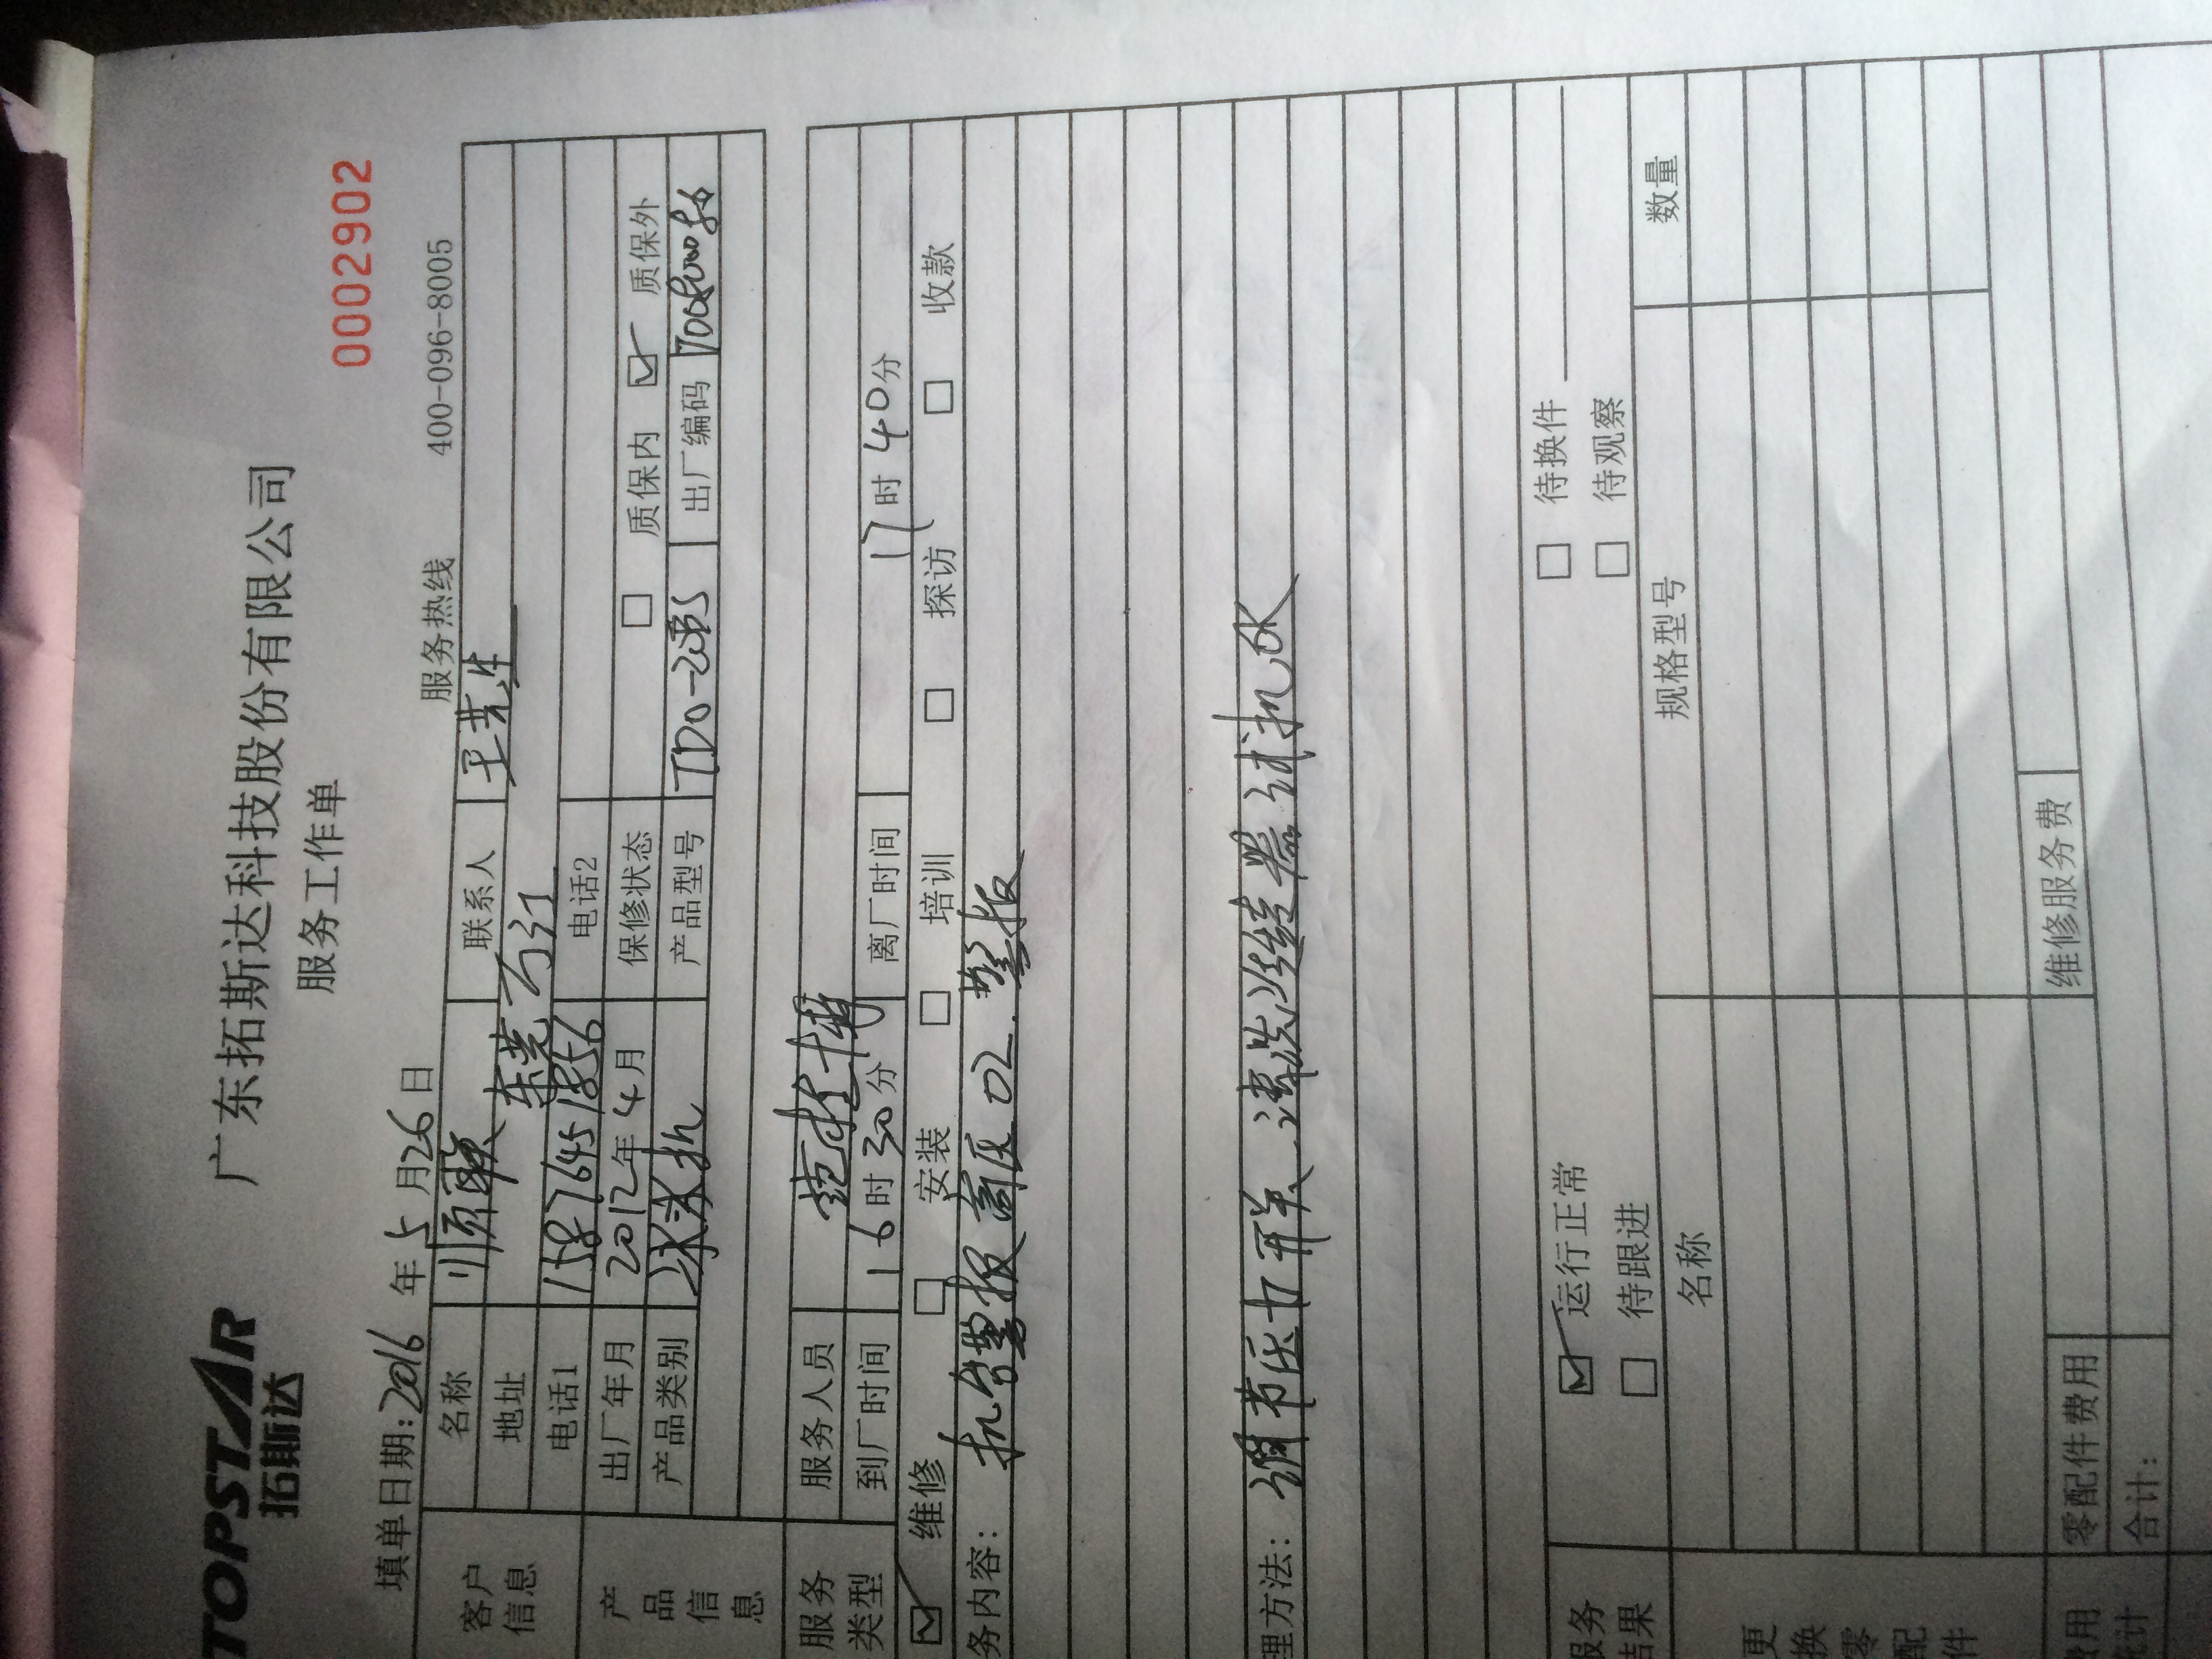 TOPSTAR
拓斯达
广东拓斯达科技股份有限公司
服务工作单
0002902
填单日期:2016年5月26日 服务热线 400-096-8005
客户信息
名称 顺联 联系人 王先生
地址 东莞万江
电话1 15876451856 电话2
产品信息
出厂年月 2012年4月 保修状态 □ 质保内 ☑ 质保外
产品类别 冰水机 产品型号 出厂编码
服务类型
服务人员
到厂时间 16时30分 离厂时间 17时40分
☑ 维修 □ 安装 □ 培训 □ 探访 □ 收款
务内容: 机台警报高压02.警报
理方法: 调节压力开关.清洗 器 机OK
服务结果
☑ 运行正常 □ 待换件
□ 待跟进 □ 待观察
更换零配件
名称 规格型号 数量
费用
零配件费用 维修服务费
合计: